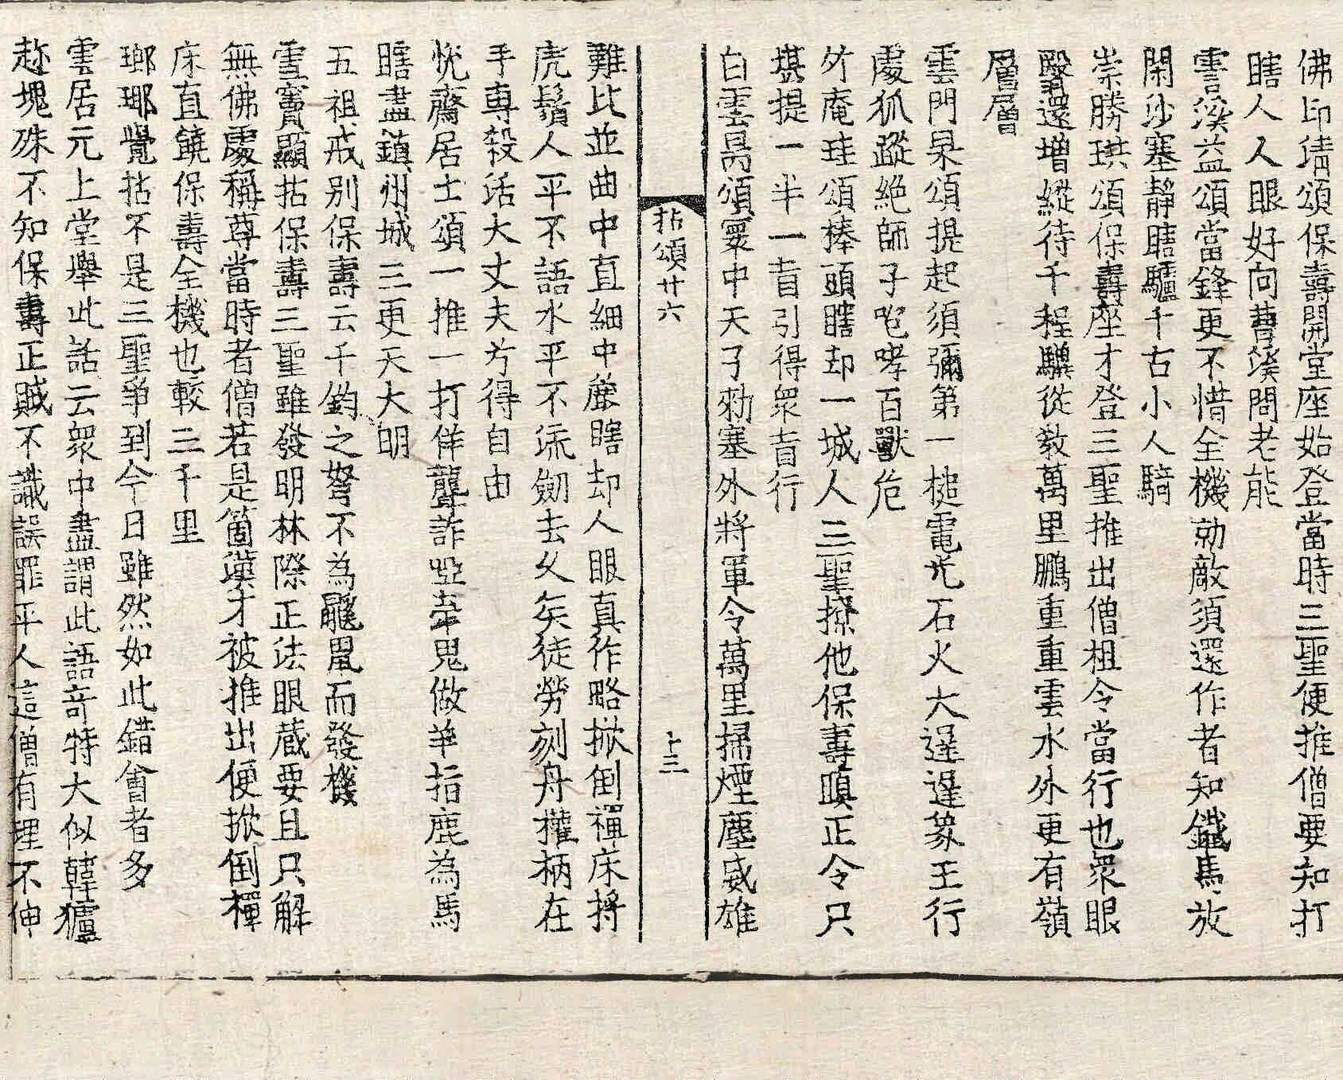 佛印倩頌保壽開堂座始登當時三聖便推僧要知打
瞎人人眼好向曹溪問老能
雲溪益頌當鋒更不惜全機勍敵須還作者知鐵馬放
閑沙塞靜瞎驢千古小人騎
崇勝珙頌保壽座才登三聖推出僧祖令當行也衆眼
翳還增縱待千程驥從教萬里鵬重重雲水外更有嶺
層層
雲門杲頌提起須彌第一槌電光石火大遲遲象王行
處狐蹤絶師子咆哮百獸危
竹庵珪頌捧頭瞎却一城人三聖撩他保壽嗔正令只
堪提一半一盲引得衆盲行
白雲昺頌寰中天子勑塞外將軍令萬里掃煙塵威雄
拈頌廿六
上三
難比並曲中直細中麄瞎却人眼真作略掀倒禪床捋
虎鬚人平不語水平不流劒去久矣徒勞刻舟權柄在
手専殺活大丈夫方得自由
恱齋居士頌一推一打佯聾詐啞牽鬼做羊指鹿為馬
瞎盡鎮州城三更天大明
五祖戒别保壽云千鈞之弩不為鼷鼠而發機
雪竇顯拈保壽三聖雖發明林際正法眼蔵要且只解
無佛處稱尊當時者僧若是箇漢才被推出便掀倒禪
床直饒保壽全機也較三千里
瑯瑘覺拈不是三聖爭到今日雖然如此錯會者多
雲居元上堂擧此話云衆中盡謂此語竒特大似韓獹
趂塊殊不知保壽正賊不識誤罪平人這僧有理不伸